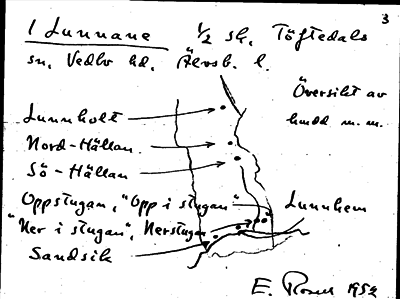 3
1 Lunnane 1/2 sk. Töftedals
sn, Vedbo hd. Älvsb. l.
Översikt av
hmd m.m.
Lunnholt
Nord-Hällan
Sö-Hällan
Oppstugan, "Opp i stugan"
Lunnhem
"Ner i stugan", Nerstugan
Sandsik
E. Rosen 1952